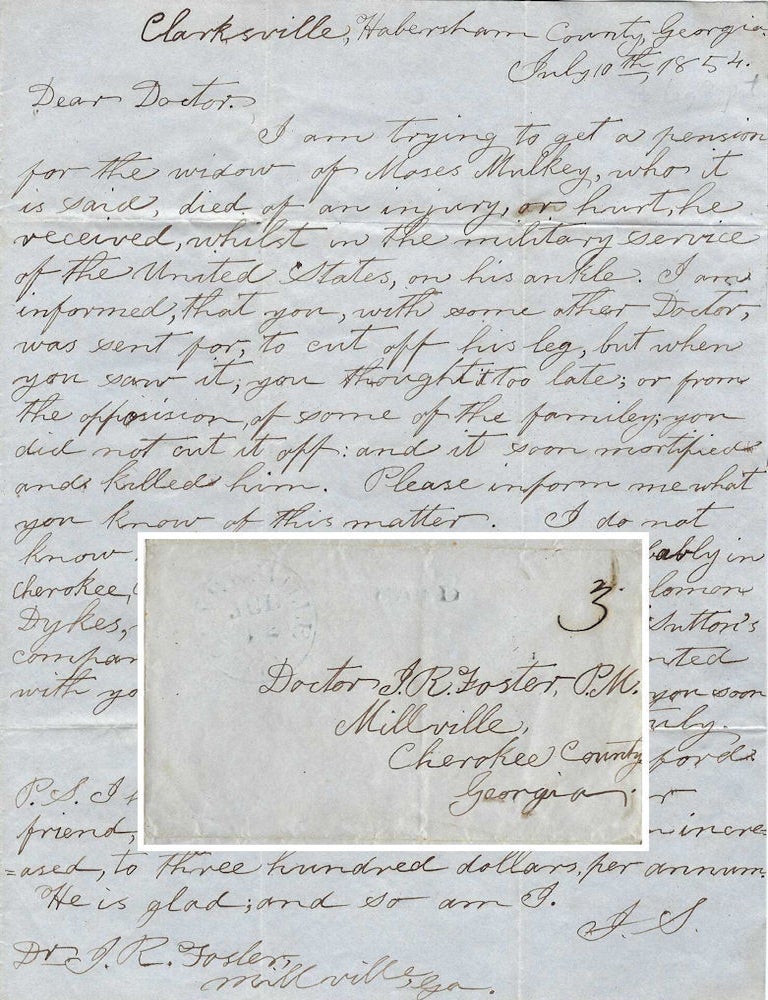 Clarksville, Habersham County, Georgia.
July 10th, 1854.
Dear Doctor.
I am trying to get a pension
for the widow of Moses Mulkey, who it
is said, died of an injury, or hurt, he
received, whilst in the military service
of the United States, on his ankle. I am
informed, that you, with some other Doctor,
was sent for, to cut off his leg, but when
you saw it, you thought it too late; or from
the oppisision, of some of the familey; you
did not cut it off: and it soon mortified
and killed him. Please inform me what
you know of this matter. I do not
know
ably in
Cherokee,
lomon
Dykes,
Sutton's
compan
nted
with yo
you soon
uly.
ford
P.S. I
r
friend,
n incre-
=ased, to three hundred dollars, per annum.
He is glad; and so am I.
J. S.
Dr. J. R. Foster,
Millville, Ga.
3
Doctor J. R. Foster, P.M.
Millville,
Cherokee County
Georgia.